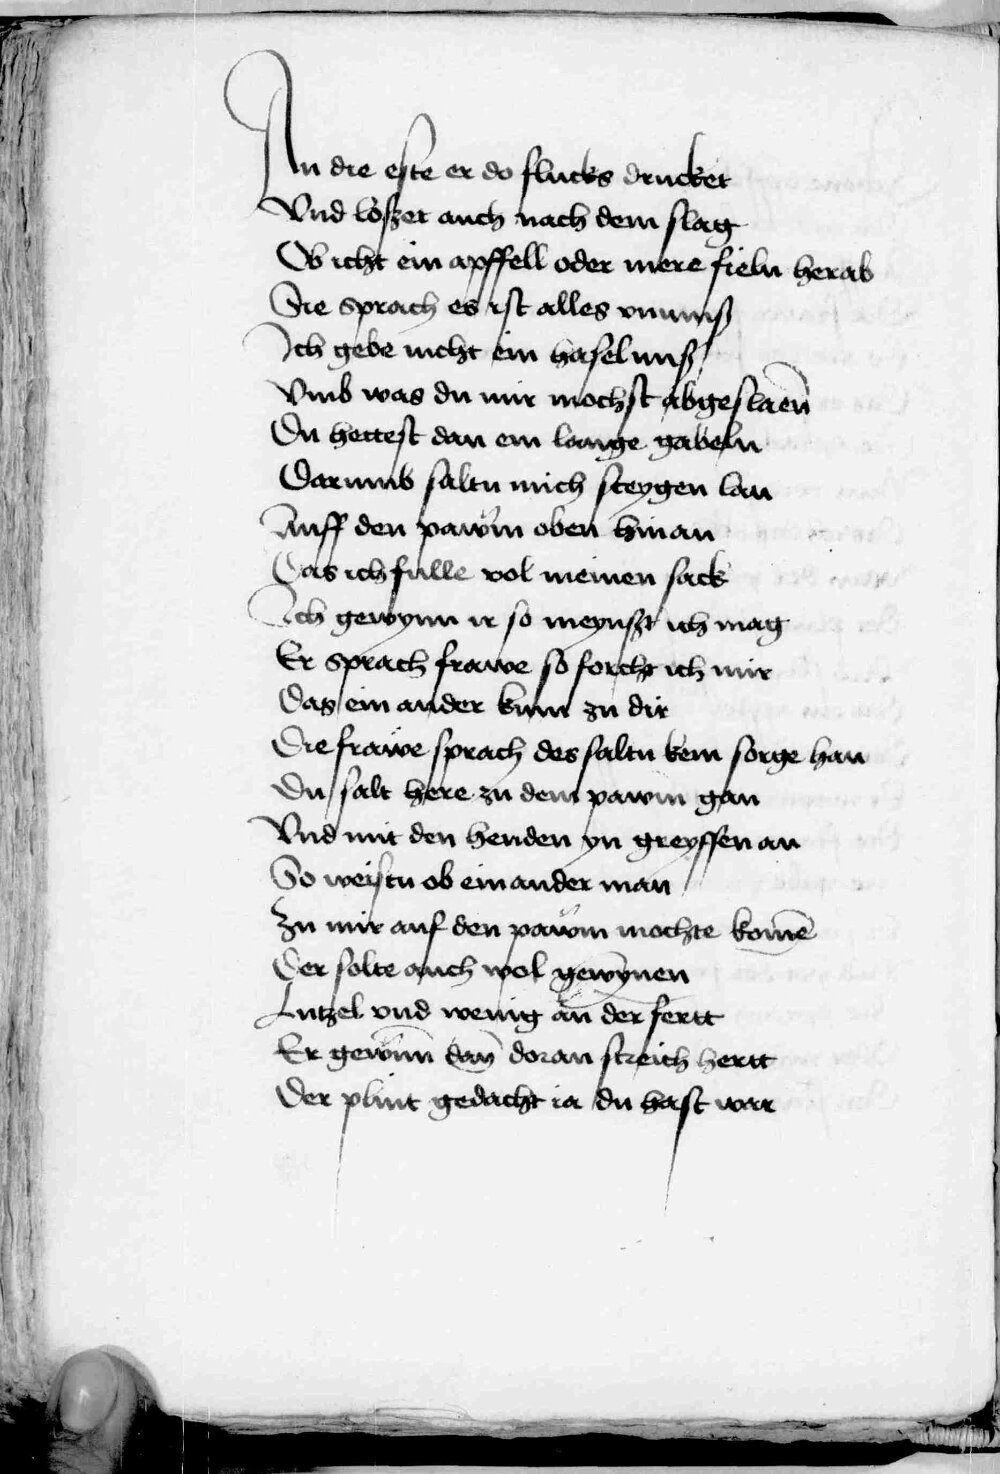 An die este er do flucks drucket
Vnd loszet auch nach dem slag
Ob icht ein apffell oder mere fieln herab
Sie sprach es ist alles vnnutz
Ich gebe nicht ein haselnuß
Vmb was du mir mochst abgeslaen̄
Du hettest dan ein lange gabeln
Darumb saltu mich steygen lan
Auff den pawm oben hinan
Das ich fulle vol meinen sack
Ich gewynn ir so meynst ich mag
Er sprach frawe so forcht ich mir
Das ein ander kum zu dir
Die frawe sprach des saltu kein sorge han
Du salt here zu dem pawm gan
Vnd mit den henden yn greyffen an
So weistu ob ein ander man
Zu mir auf den pawm mochte kom̄e
Der solte auch wol gewȳnen
Lutzel vnd wenig an der fertt
Er gewūnn dan̄ doran streich hertt
Der plint gedacht ia du hast war